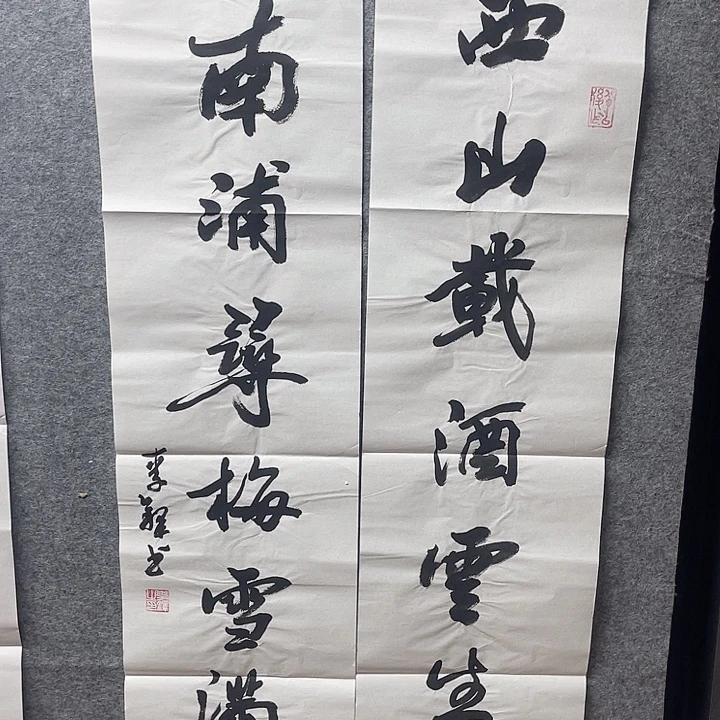 西山載酒雲生
南浦尋梅雪滿
李鐸书